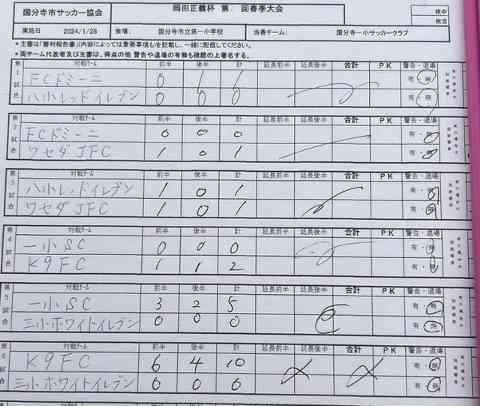 国分寺市サッカー協会 岡田正義杯 第 回春季大会
実施日 2024/1/28 会場 国分寺市立第一小学校 当番チーム 国分寺一小サッカークラブ
第1試合 対戦チーム 前半 後半 計 延長前半 延長後半 合計 PK 警告・退場
FCドミーニ 0 1 有・無
八小レッドイレブン 0 0 0 有・無
第2試合 対戦チーム 前半 後半 計 延長前半 延長後半 合計 PK 警告・退場
FCドミーニ 0 0 0 有・無
ワセダJFC 1 0 1 有・無
第3試合 対戦チーム 前半 後半 計 延長前半 延長後半 合計 PK 警告・退場
八小レッドイレブン 1 0 1 有・無
ワセダJFC 1 0 1 有・無
第4試合 対戦チーム 前半 後半 計 延長前半 延長後半 合計 PK 警告・退場
一小SC 0 0 0 有・無
K9FC 1 1 2 有・無
第5試合 対戦チーム 前半 後半 計 延長前半 延長後半 合計 PK 警告・退場
一小SC 3 2 5 有・無
三小ホワイトイレブン 0 0 0 有・無
第6試合 対戦チーム 前半 後半 計 延長前半 延長後半 合計 PK 警告・退場
K9FC 6 4 10 有・無
三小ホワイトイレブン 0 0 0 有・無